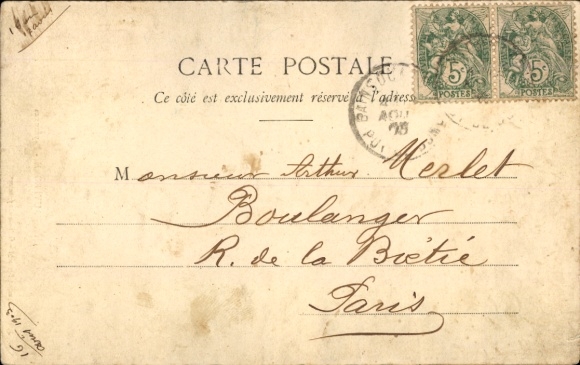 CARTE POSTALE
Ce côté est exclusivement réservé à l'adresse
5
POSTES
5
POSTES
AOU
Monsieur Arthur Merlet
Boulanger
R. de la Boëtie
Paris